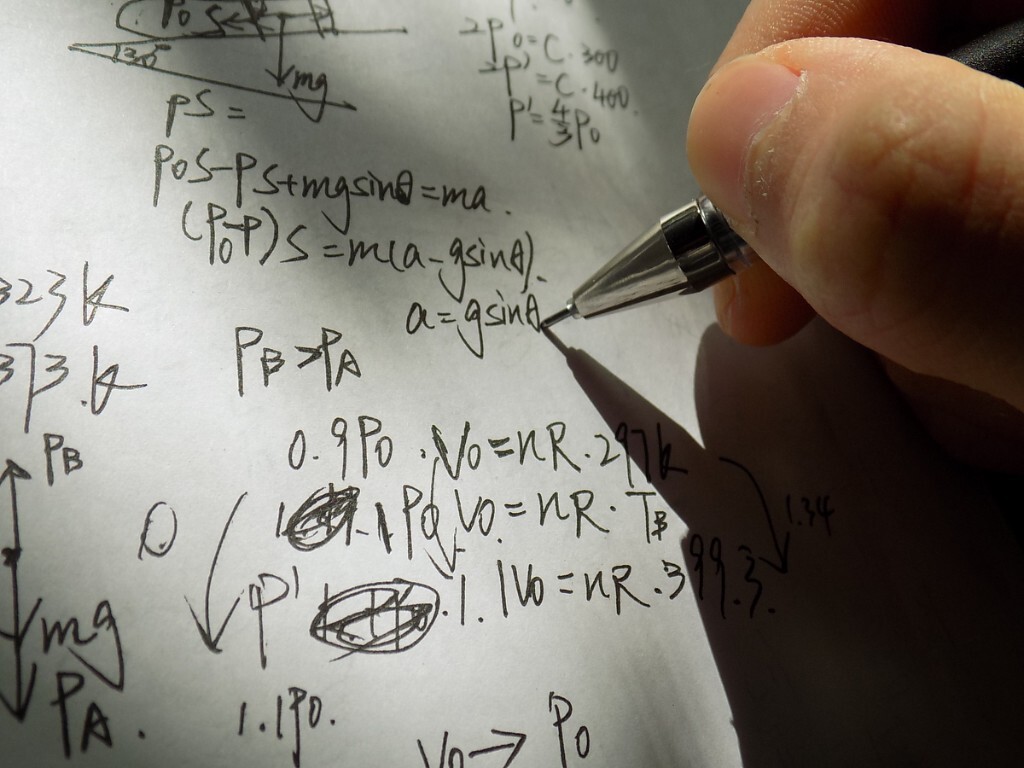 P₀S
30°
mg
2P₀ = C·300
2P' = C·400.
P' = 4/3 P₀
PS =
P₀S-PS+mgsinθ=ma.
(P₀-P)S = m(a-gsinθ).
a=gsinθ
323k
373.k
PB>PA
PB
0.9P₀.V₀=nR.297k
1.1P₀V₀=nR.TB
1.34
P' .1.1V₀=nR.399.3.
mg
PA.
1.1P₀.
V₀→P₀